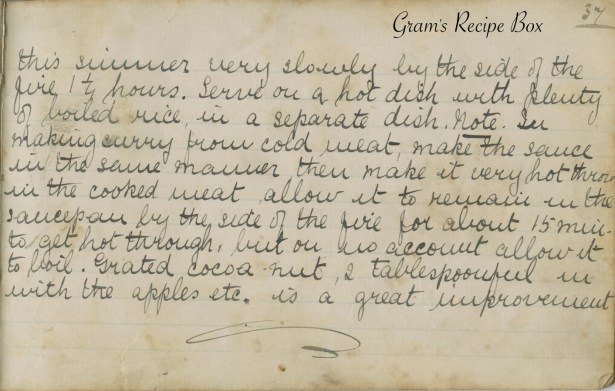 Gram's Recipe Box
37
this simmer very slowly by the side of the
fire 1 1/4 hours. Serve on a hot dish with plenty
of boiled rice, in a separate dish. Note. In
making curry from cold meat, make the sauce
in the same manner then make it very hot throw
in the cooked meat allow it to remain in the
saucepan by the side of the fire for about 15 min.
to get hot through, but on no account allow it
to boil. Grated cocoa-nut, 2 tablespoonful in
with the apples etc. is a great improvement